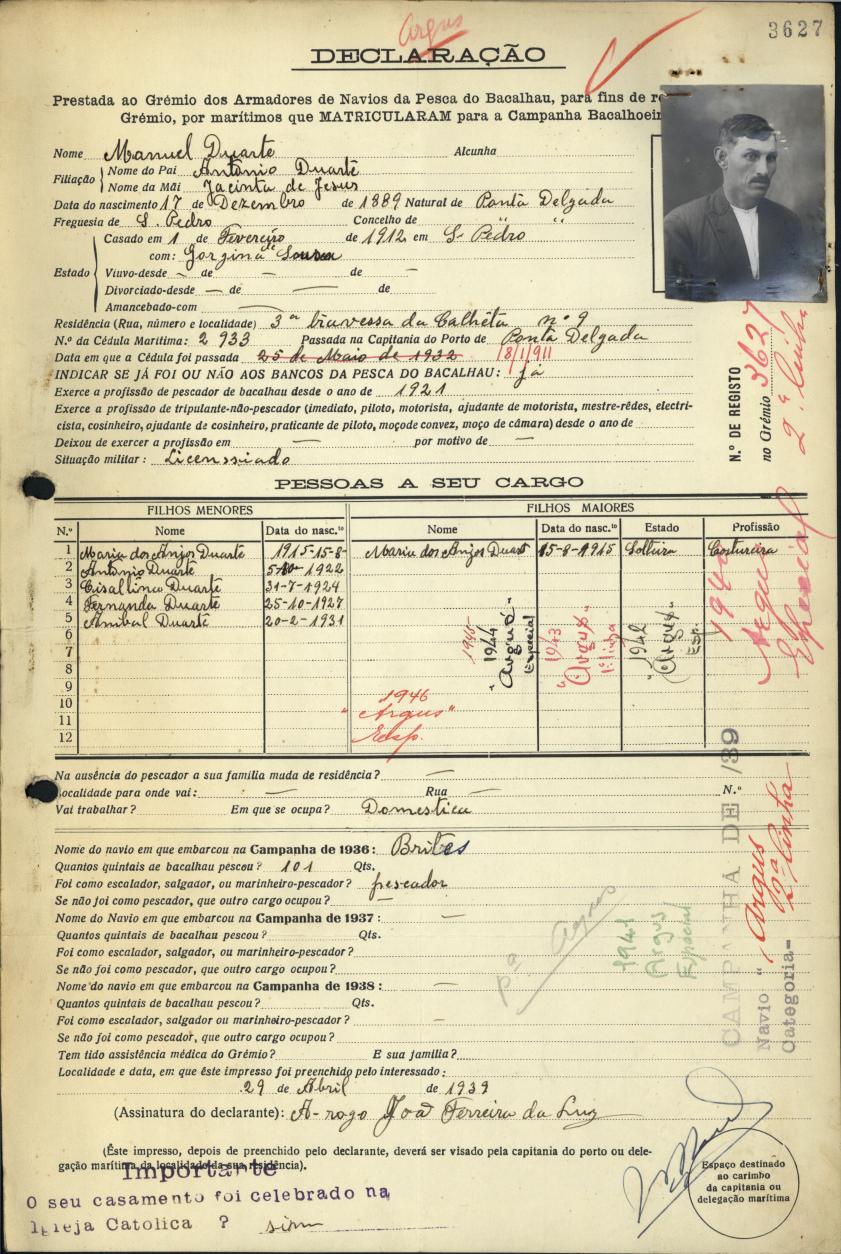 Argus
3627
DECLARAÇÃO
Prestada ao Grémio dos Armadores de Navios da Pesca do Bacalhau, para fins de
Grémio, por marítimos que MATRICULARAM para a Campanha
Nome Manuel Duarte Alcunha
Filiação Nome do Pai António Duarte
Nome da Mãi Jacinta de Jesus
Data do nascimento 17 de Dezembro de 1889 Natural de Ponta Delgada
Freguesia de S. Pedro Concelho de " "
Estado Casado em 1 de Fevereiro de 1912 em S. Pedro
com: Gorgina Sousa
Viuvo-desde — de — de —
Divorciado-desde — de — de
Amancebado-com —
Residência (Rua, número e localidade) 3ª travessa da Calhêta nº 9
N.º da Cédula Marítima: 2 933 Passada na Capitania do Porto de Ponta Delgada
Data em que a Cédula foi passada 25 de Maio de 1932 18/1/911
INDICAR SE JÁ FOI OU NÃO AOS BANCOS DA PESCA DO BACALHAU: já
Exerce a profissão de pescador de bacalhau desde o ano de 1921
Exerce a profissão de tripulante-não-pescador (imediato, piloto, motorista, ajudante de motorista, mestre-rêdes, electri-
cista, cosinheiro, ajudante de cosinheiro, praticante de piloto, moço de convez, moço de câmara) desde o ano de
Deixou de exercer a profissão em — por motivo de —
Situação militar: Licenssiado
N.º DE REGISTO
no Grémio 3627
2.ª linha
PESSOAS A SEU CARGO
FILHOS MENORES FILHOS MAIORES
N.º Nome Data do nasc.to Nome Data do nasc.to Estado Profissão
1 Maria dos Anjos Duarte 1915-15-8- Maria dos Anjos Duarte 15-8-1915 Solteira Costureira
2 António Duarte 5-10-1922
3 Cisaltino Duarte 31-7-1924
4 Fernanda Duarte 25-10-1927
5 Anibal Duarte 20-2-1931
6
7
8
9
10
11
12
1945
1944
"Argus"
Especial
1943
"Argus"
1ª linha
1942
"Argus"
Esp.
1940
Argus
Especial
1946
"Argus"
Esp.
Na ausência do pescador a sua família muda de residência? —
Localidade para onde vai: — Rua — N.º
Vai trabalhar? Em que se ocupa? Domestica
Nome do navio em que embarcou na Campanha de 1936: Brites
Quantos quintais de bacalhau pescou? 101 Qts.
Foi como escalador, salgador, ou marinheiro-pescador? pescador
Se não foi como pescador, que outro cargo ocupou? —
Nome do Navio em que embarcou na Campanha de 1937: —
Quantos quintais de bacalhau pescou? Qts.
Foi como escalador, salgador, ou marinheiro-pescador?
Se não foi como pescador, que outro cargo ocupou?
Nome do navio em que embarcou na Campanha de 1938: —
Quantos quintais de bacalhau pescou? Qts.
Foi como escalador, salgador ou marinheiro-pescador? —
Se não foi como pescador, que outro cargo ocupou?
Pª Argus
1941
Argus
Especial
CAMPANHA DE /39
Navio "Argus
Categoria- 2ª linha
Tem tido assistência médica do Grémio? E sua família?
Localidade e data, em que êste impresso foi preenchido pelo interessado:
29 de Abril de 1939
(Assinatura do declarante): A-rogo João Ferreira da Luz
(Êste impresso, depois de preenchido pelo declarante, deverá ser visado pela capitania do porto ou dele-
gação marítima da localidade da sua residência).
Importante
O seu casamento foi celebrado na
Igreja Catolica ? sim
Espaço destinado
ao carimbo
da capitania ou
delegação marítima